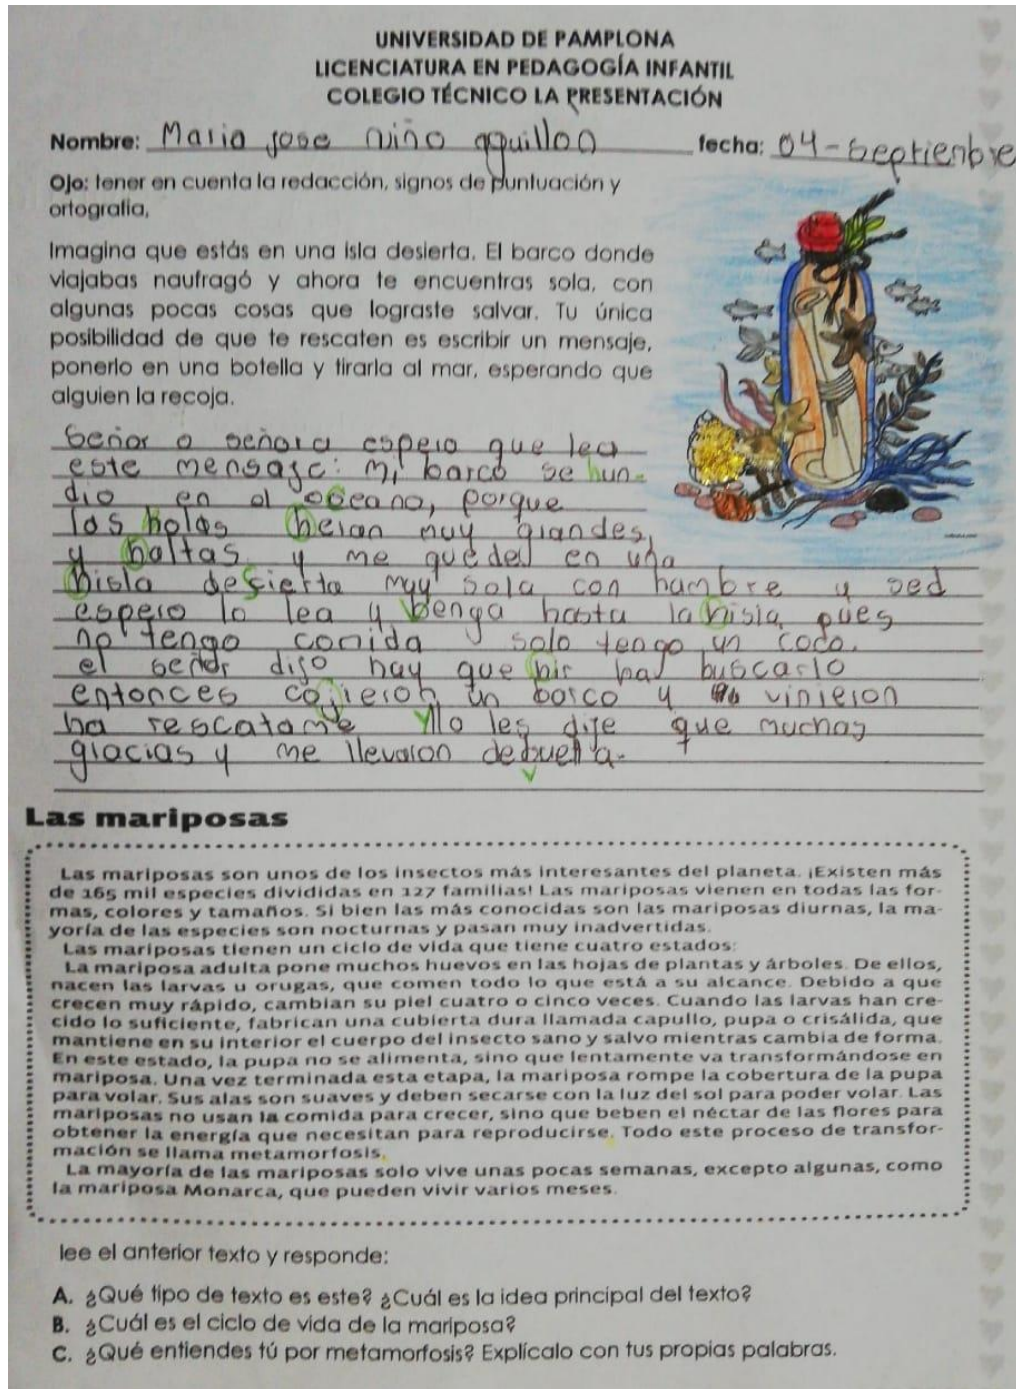 UNIVERSIDAD DE PAMPLONA
LICENCIATURA EN PEDAGOGÍA INFANTIL
COLEGIO TÉCNICO LA PRESENTACIÓN
Nombre: Maria jose niño aguillon fecha: 04-Septienbre
Ojo: tener en cuenta la redacción, signos de puntuación y
ortografía,
Imagina que estás en una isla desierta. El barco donde
viajabas naufragó y ahora te encuentras sola, con
algunas pocas cosas que lograste salvar. Tu única
posibilidad de que te rescaten es escribir un mensaje,
ponerlo en una botella y tirarla al mar, esperando que
alguien la recoja.
Señor o señora espero que lea
este mensaje: Mi barco se hun-
dio en el oceano, porque
las holas heran muy grandes,
y haltas y me quede en una
hisla desierta muy sola con hambre y sed
espero lo lea y benga hasta la hisla, pues
no tengo comida solo tengo un coco.
el señor dijo hay que hir ha buscarlo
entonces cojieron un barco y vinieron
ha rescatame yllo les dije que muchas
gracias y me llevaron debuelta.
v
Las mariposas
Las mariposas son unos de los insectos más interesantes del planeta. ¡Existen más
de 165 mil especies divididas en 127 familias! Las mariposas vienen en todas las for-
mas, colores y tamaños. Si bien las más conocidas son las mariposas diurnas, la ma-
yoría de las especies son nocturnas y pasan muy inadvertidas.
Las mariposas tienen un ciclo de vida que tiene cuatro estados:
La mariposa adulta pone muchos huevos en las hojas de plantas y árboles. De ellos,
nacen las larvas u orugas, que comen todo lo que está a su alcance. Debido a que
crecen muy rápido, cambian su piel cuatro o cinco veces. Cuando las larvas han cre-
cido lo suficiente, fabrican una cubierta dura llamada capullo, pupa o crisálida, que
mantiene en su interior el cuerpo del insecto sano y salvo mientras cambia de forma.
En este estado, la pupa no se alimenta, sino que lentamente va transformándose en
mariposa. Una vez terminada esta etapa, la mariposa rompe la cobertura de la pupa
para volar. Sus alas son suaves y deben secarse con la luz del sol para poder volar. Las
mariposas no usan la comida para crecer, sino que beben el néctar de las flores para
obtener la energía que necesitan para reproducirse. Todo este proceso de transfor-
mación se llama metamorfosis.
La mayoría de las mariposas solo vive unas pocas semanas, excepto algunas, como
la mariposa Monarca, que pueden vivir varios meses.
lee el anterior texto y responde:
A. ¿Qué tipo de texto es este? ¿Cuál es la idea principal del texto?
B. ¿Cuál es el ciclo de vida de la mariposa?
C. ¿Qué entiendes tú por metamorfosis? Explícalo con tus propias palabras.